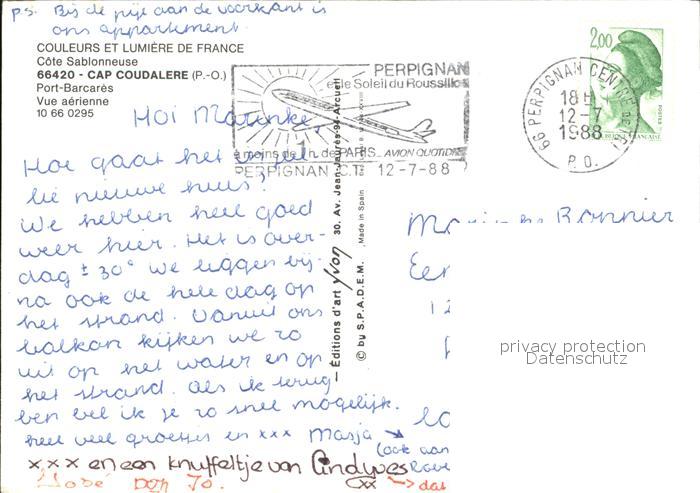 P.S. Bij de pijl aan de voorkant is
ons appartement.
COULEURS ET LUMIÈRE DE FRANCE
Côte Sablonneuse
66420 - CAP COUDALERE (P.-O.)
Port-Barcarès
Vue aérienne
10 66 0295
PERPIGNAN
et le Soleil du Roussillon
à moins de 1h de PARIS AVION QUOTIDIEN
PERPIGNAN C.T. 12-7-88
66 PERPIGNAN CENTRE
18H
12-7
1988
P.O.
2,00
POSTES
RÉPUBLIQUE FRANÇAISE
Hoi Marinke,
Hoe gaat het in jul-
lie nieuwe huis?
We hebben heel goed
weer hier. Het is over-
dag ± 30° we liggen bij-
na ook de hele dag op
het strand. Vanuit ons
balkon kijken we zo
uit op het water en op
het strand. Als ik terug
ben bel ik je zo snel mogelijk.
heel veel groetjes en xxx Masja
(ook aan
xxx en een knuffeltje van Cindy
xx → dat
Editions d'art yvon 30, Av. Jean-Jaurès-94-Arcueil
© by S.P.A.D.E.M. Made in Spain
Bonnier
privacy protection
Datenschutz